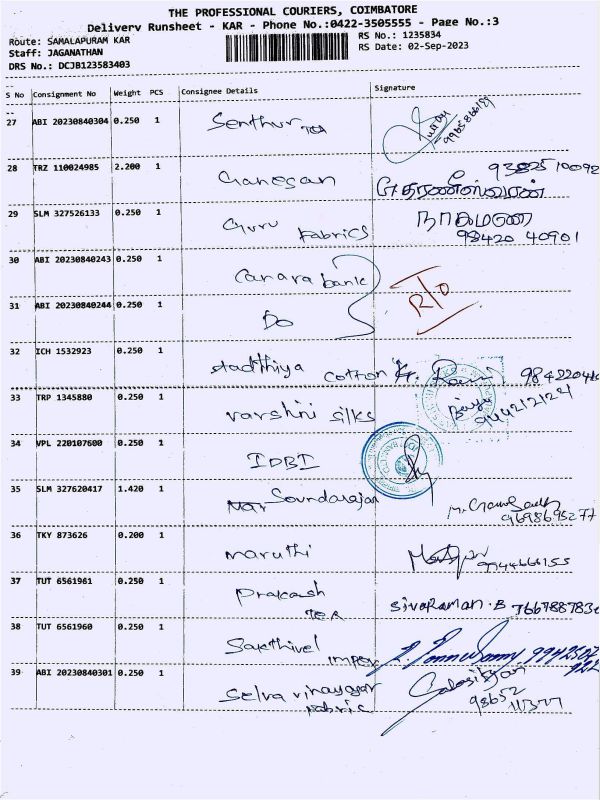 THE PROFESSIONAL COURIERS, COIMBATORE
Delivery Runsheet - KAR - Phone No.:0422-3505555 - Page No.:3
Route: SAMALAPURAM KAR
Staff: JAGANATHAN
DRS No.: DCJB123583403
RS No.: 1235834
RS Date: 02-Sep-2023
S No Consignment No Weight PCS Consignee Details Signature
27 ABI 20230840304 0.250 1 Senthur TEA
28 TRZ 110024985 2.200 1 Ganesan
29 SLM 327526133 0.250 1 Guru Fabrics நாகமணி
98420 40901
30 ABI 20230840243 0.250 1 Canara bank
R/O
31 ABI 20230840244 0.250 1 Do
32 ICH 1532923 0.250 1 cotton
33 TRP 1345880 0.250 1 Varshini Silks
9442121221
34 VPL 220107600 0.250 1 IDBI
35 SLM 327620417 1.420 1 Soundarajan
9698695277
36 TKY 873626 0.200 1 Maruthi 9944666155
37 TUT 6561961 0.250 1 Prakash
TEA SivaRaman.B
38 TUT 6561960 0.250 1 Sakthivel Impex
39 ABI 20230840301 0.250 1 Selva vinayagar
Fabric 98652
11377